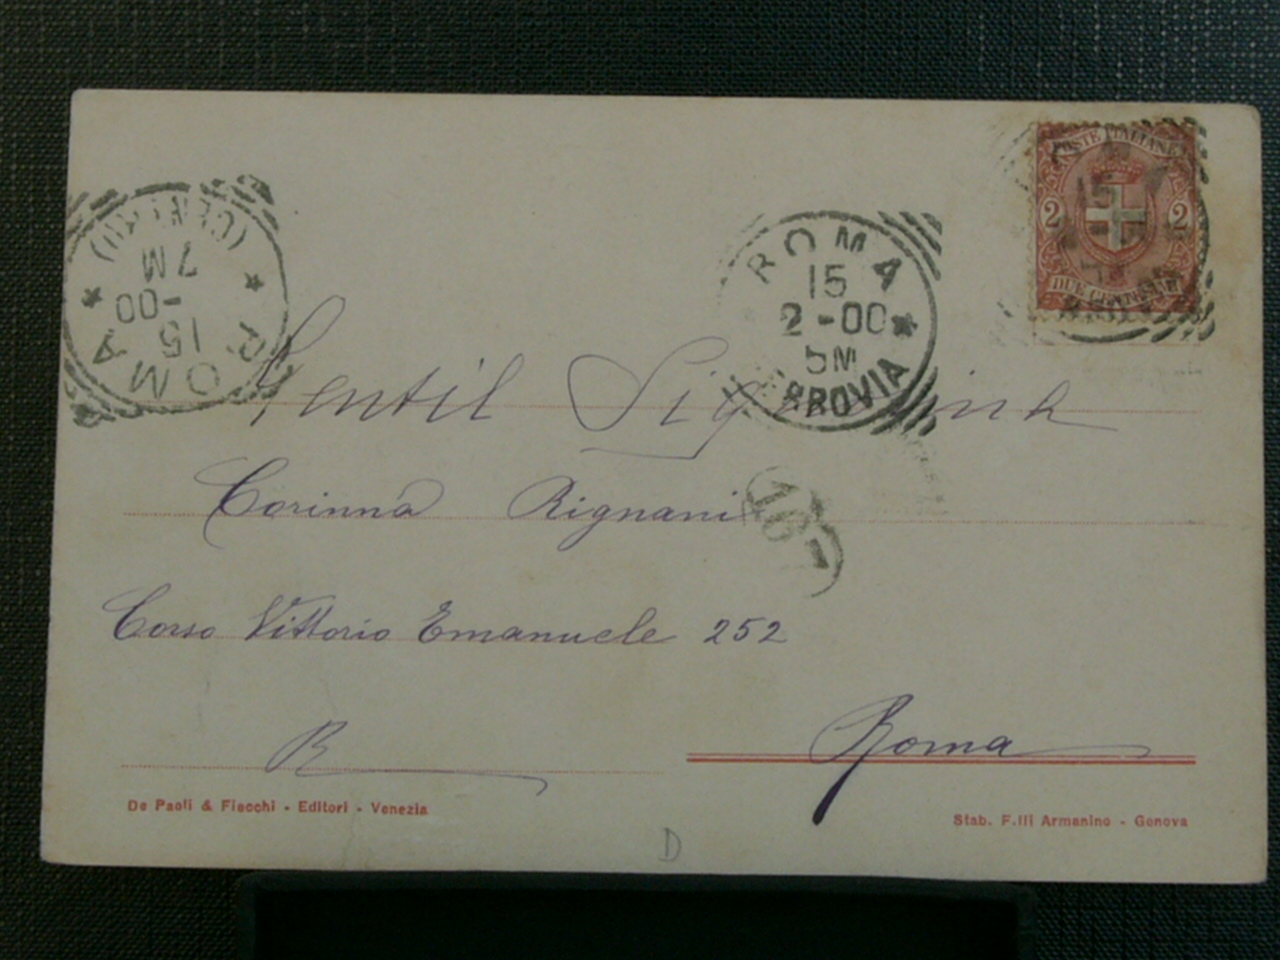 POSTE ITALIANE
2 2
DUE CENTESIMI
ROMA
(CENTRO)
15
-00
7M
ROMA
15
2-00
5M
FERROVIA
Gentil Signorina
Corinna Rignani
16
Corso Vittorio Emanuele 252
R
Roma
De Paoli & Fiecchi - Editori - Venezia
Stab. F.lli Armanino - Genova
D